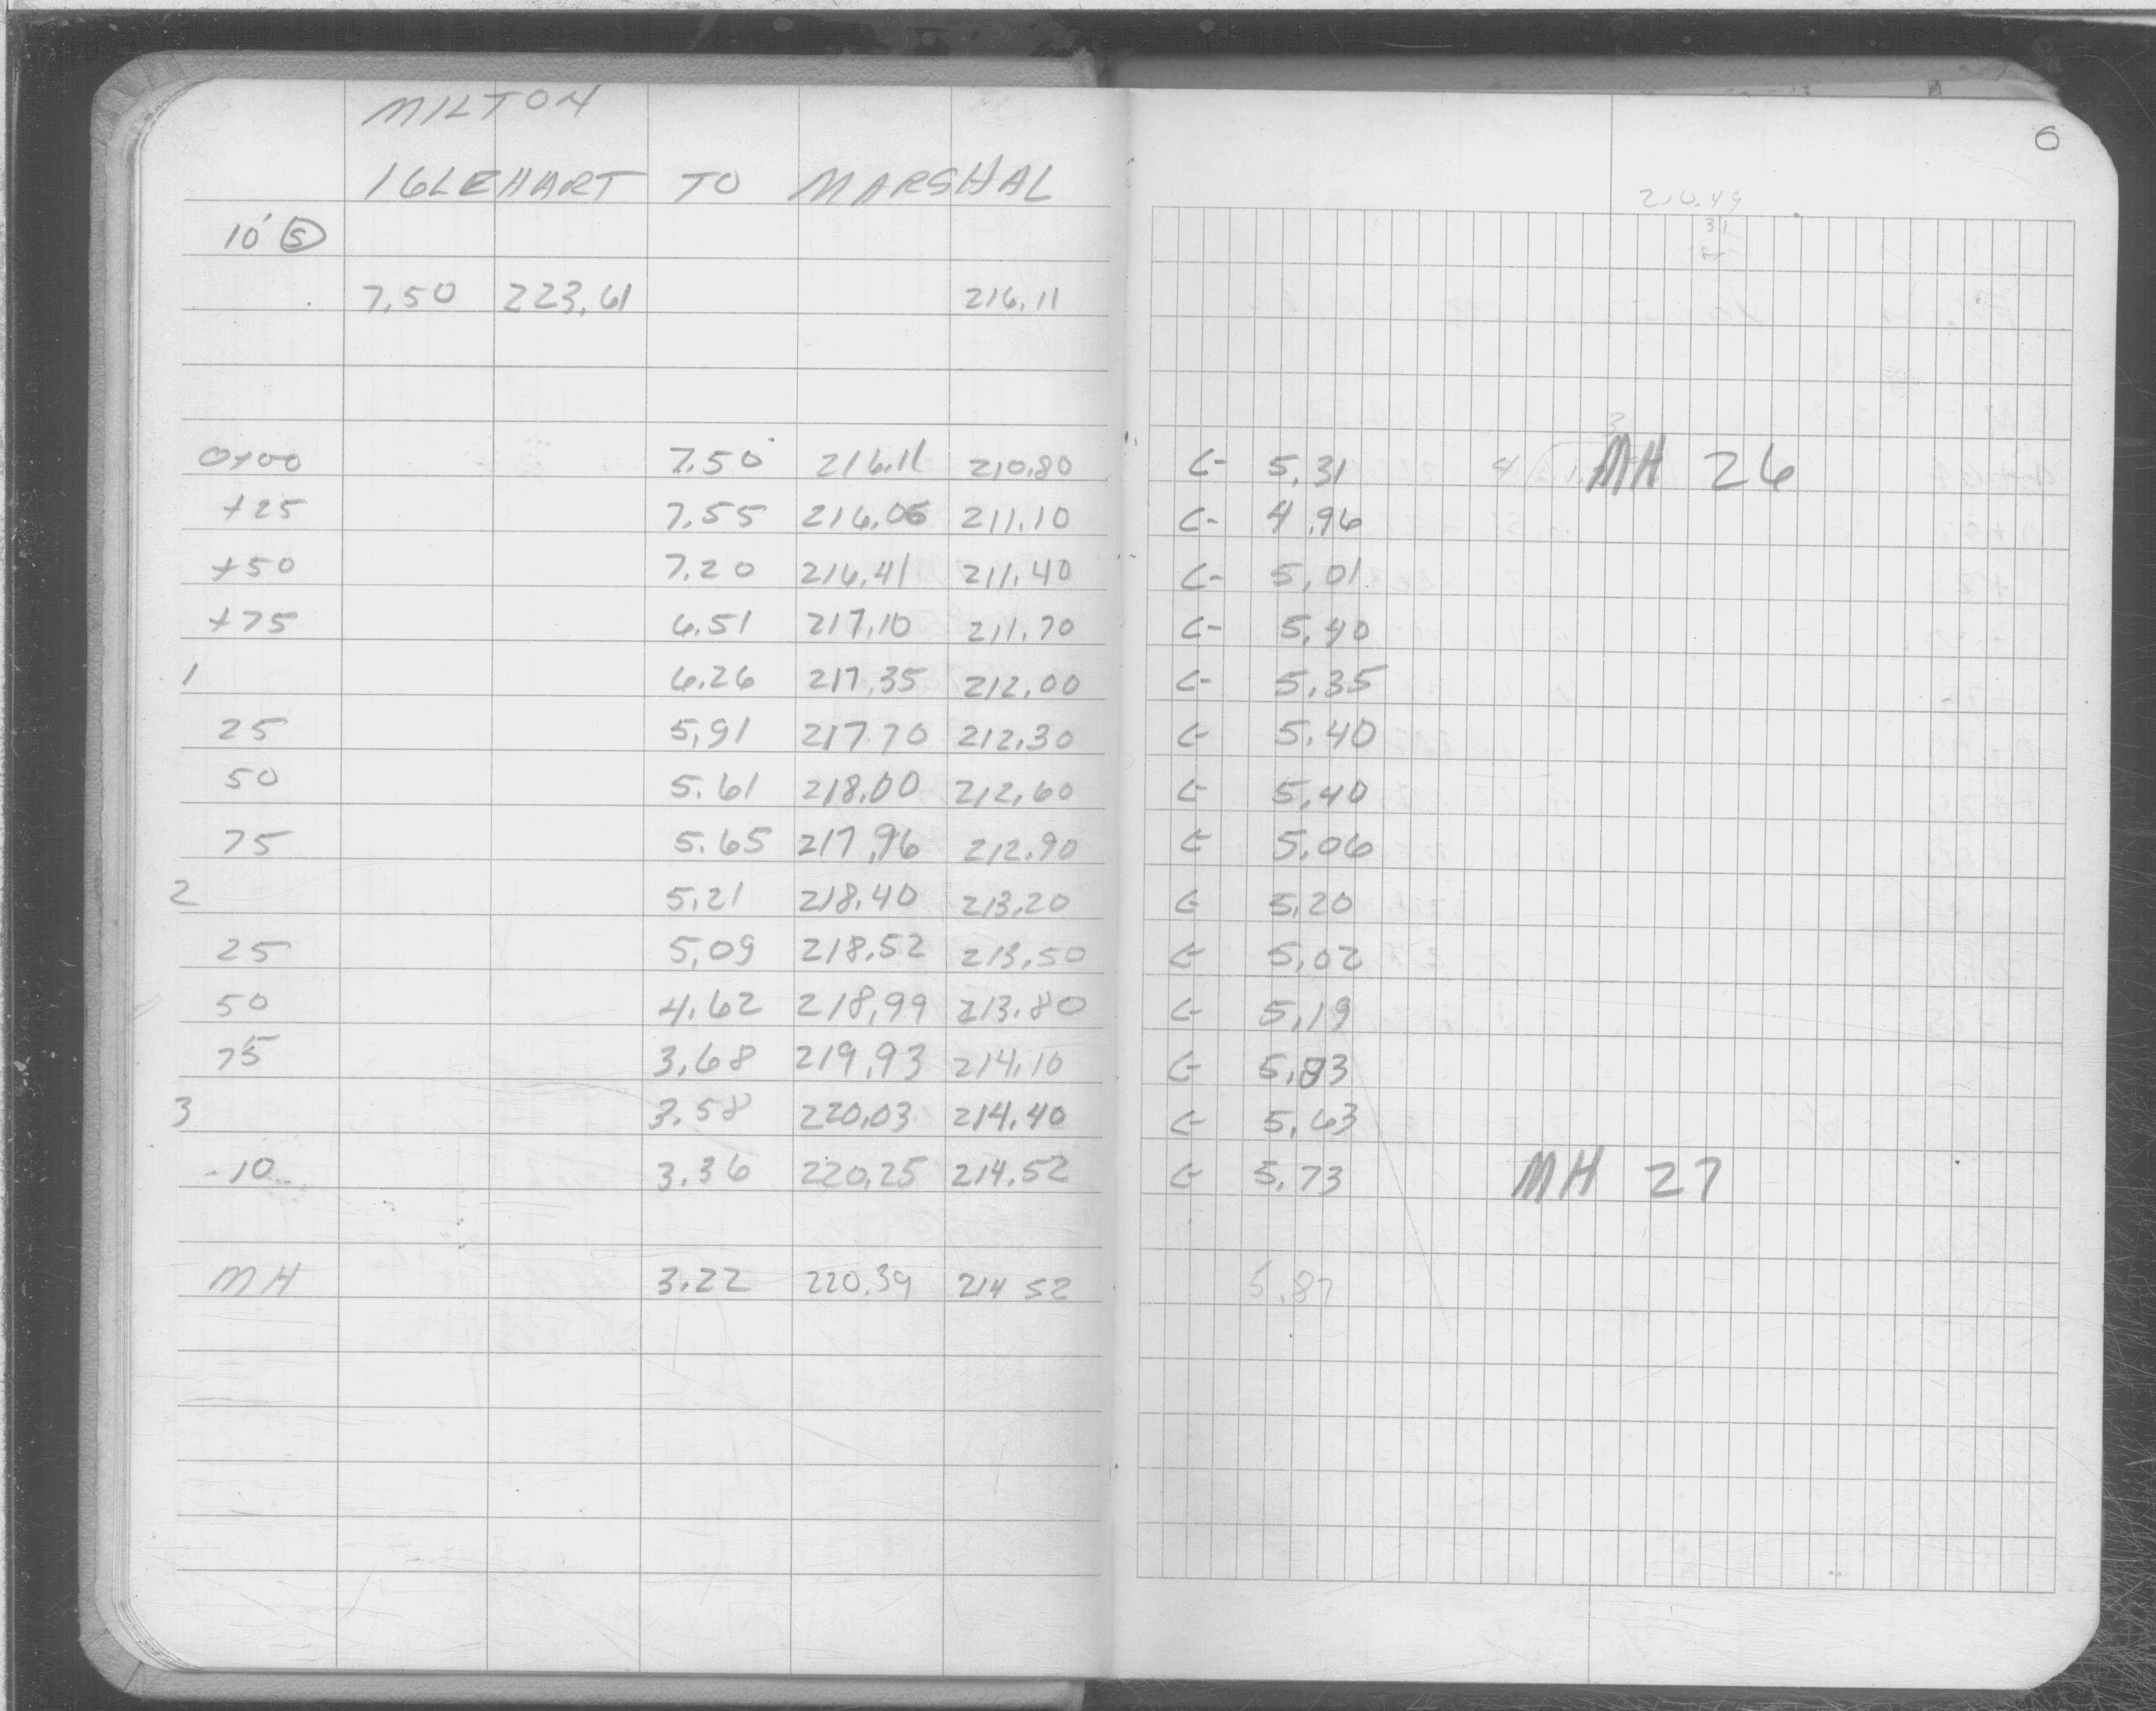 MILTON
IGLEHART TO MARSHAL
6
210.49
31
10' S
7.50 223.61 216.11
3
0+00 7.50 216.11 210.80 C- 5.31 MH 26
+25 7.55 216.06 211.10 C- 4.96
+50 7.20 216.41 211.40 C- 5.01
+75 6.51 217.10 211.70 C- 5.40
1 6.26 217.35 212.00 C- 5.35
25 5.91 217.70 212.30 C- 5.40
50 5.61 218.00 212.60 C- 5.40
75 5.65 217.96 212.90 C- 5.06
2 5.21 218.40 213.20 C- 5.20
25 5.09 218.52 213.50 C- 5.02
50 4.62 218.99 213.80 C- 5.19
75 3.68 219.93 214.10 C- 5.83
3 3.58 220.03 214.40 C- 5.63
-10 3.36 220.25 214.52 C- 5.73 MH 27
MH 3.22 220.39 214 52 5.87